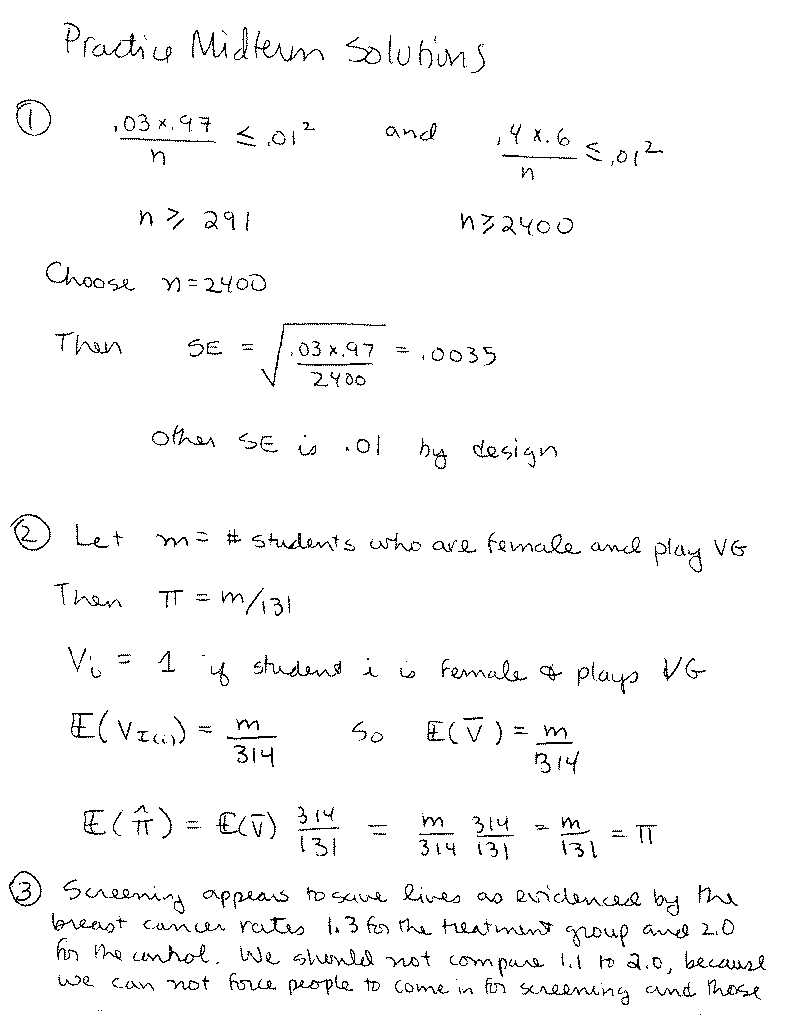 Practice Midterm Solutions
① .03 x .97 / n ≤ .01² and .4 x .6 / n ≤ .01²
n ≥ 291 n ≥ 2400
Choose n = 2400
Then SE = √(.03 x .97 / 2400) = .0035
Other SE is .01 by design
② Let m = # students who are female and play VG
Then π = m/131
Vᵢ = 1 if student i is female & plays VG
𝔼(V_I(i)) = m/314 So 𝔼(V̄) = m/314
𝔼(π̂) = 𝔼(V̄) 314/131 = m/314 314/131 = m/131 = π
③ Screening appears to save lives as evidenced by the
breast cancer rates 1.3 for the treatment group and 2.0
for the control. We should not compare 1.1 to 2.0, because
we can not force people to come in for screening and those